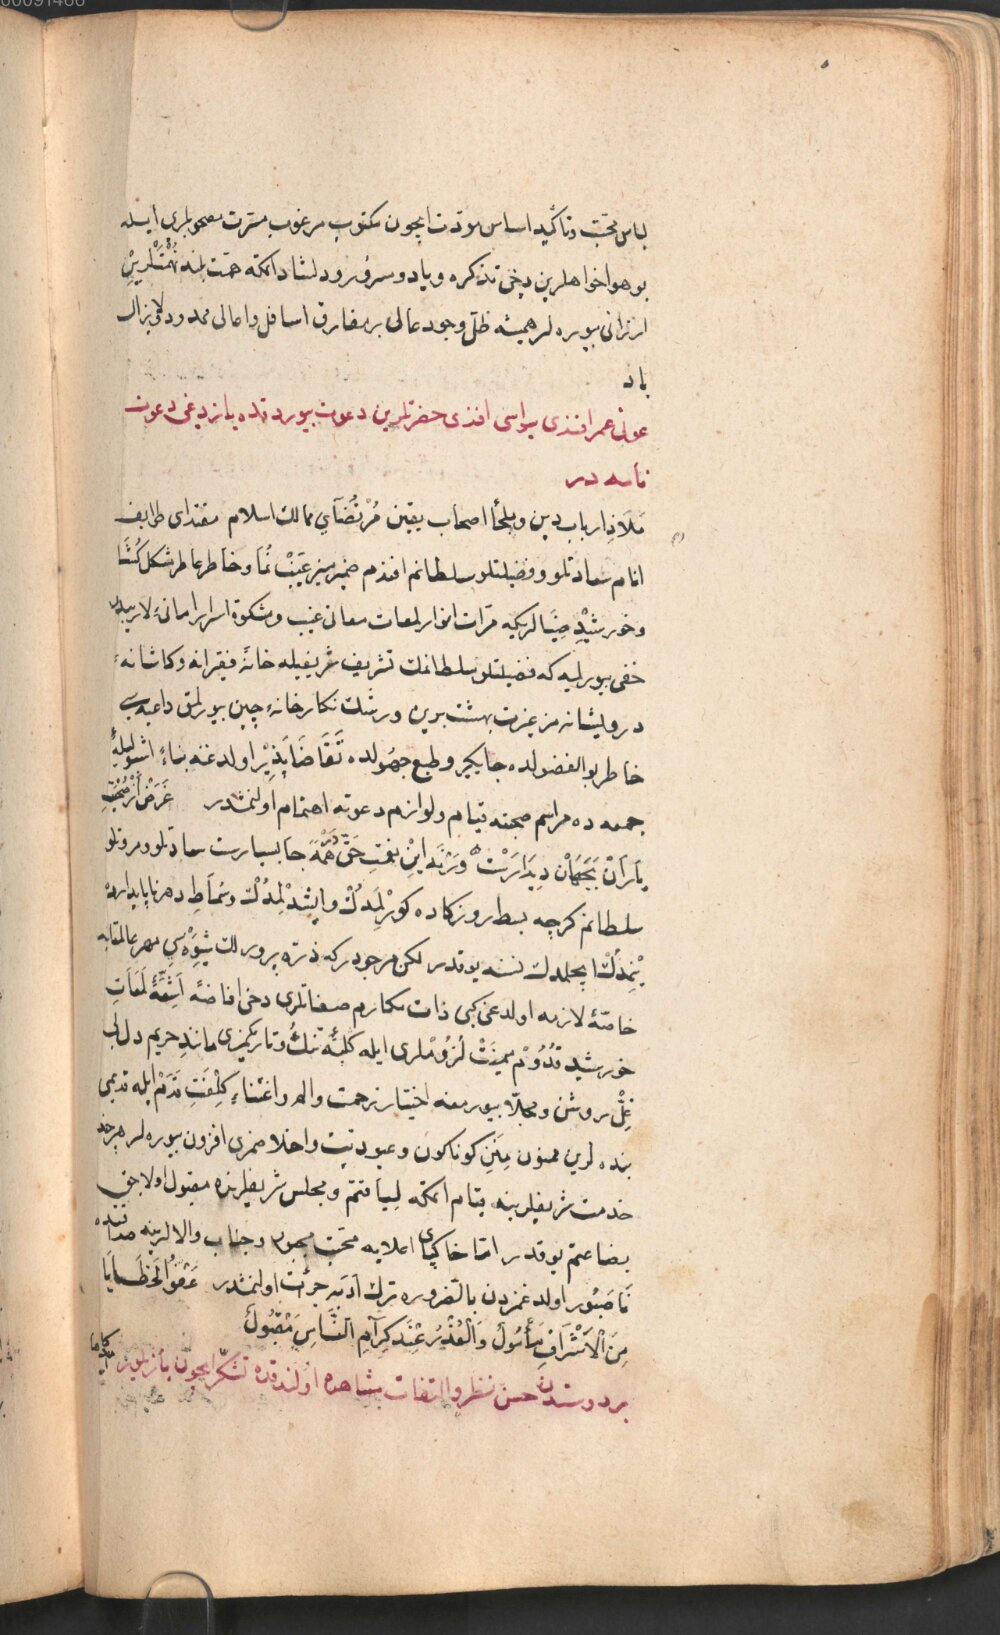 لباس محبّت وتأكيد اساس مودّت ايچون مكتوب مرغوب مسرّت مصحوبلرى ايله
بو هواخواهلرين دخى تذكره و ياد و مسرور و دلشاد ايتمكه همّت بلند نهمتلرين
ارزانى بيوره لر هميشه ظلّ وجود عالى بر مفارق اسافل واعالى ممدود لا يزال
باد
عونى عمر افندى سيواسى افندى حضرتلرين دعوت بيوردقده يازديغى دعوت
نامه در
مَلَاذِ ارباب دين و ملجأ اصحاب يقين مُرْتَضَآىِ ممالك اسلام مقتداى طوايف
انام سعادتلو و فضيلتلو سلطانم افندم ضمير منير غَيْبْ نُمَا و خاطر عاطر مشكل كُشَا
و خورشيْدِ ضِيَالريكه مرآت انوار لمعات معانى غيب و مشكوة اسرار امانىء لاريبدر
خفى بيورلميه كه فضيلتلو سلطانمك تشريف شريفيله خانهٔ فقيرانه و كاشانهء
درويشانه مز غيرت بهشت برين و رشك نكارخانهء چين بيورلمق داعيه سى
خاطر بو الفضولده جايكير و طبع جهولده تَقَاضَاپَذِيْر اولدغنه بناءً اشبو ليلهٔ
جمعه ده مراسم صحبته قيام و لوازم دعوته اهتمام اولنمشدر غَرَضْ اَزْ صُحْبَتِ
يَارَانْ بَجَهَانْ دِيدَارَسْت وَرْنَه اِينْ نِعْمَتِ حَقْ دَرْ هَمَه جا بسيارست سعادتلو و مروتلو
سلطانم كرچه بسط روزكاده كورْلمَدُكْ و ايشدْلمدُكْ و سَمَاطِ دهر ناپايداردن
يْنمِدُكْ ايچلمدك نسنه يوقدر لكن مرجودركه ذرّه پرورلك شيوَه سِى مهر عالمتابه
خاصّهٔ لازمه اولدغى كبى ذات مكارم صفاتلرى دخى افاضهٔ اَشِعَّهٔ لَمَعَاتِ
خورشيد قدُومْ ميمنَتْ لُزُوملرى ايله كلبهٔ تنكْ و تاريكمزى مانندِ حريم دل بى
غِلّْ روشن و مجلّا بيورمغه اختيار زحمت و الم و اغتناءِ كِلْفَتِ قَدَمْ ايله قديمى
بنده لرين ممنون مِنَنِ كوناكون و عبوديّت و اخلاصمزى افزون بيوره لر هرچند
خدمت شريفلرينه قيام ايتمكه لياقتم و مجلس شريفلرنده مقبول اولاجق
بضاعتم يوقدر امّا خاكپاى اعلايه محبّت مجبور و جناب والالرينه صداقتده
نَاصَبُور اولدغمزدن بالضروره ترك اَدَبه جرئت اولنمشدر عَفْوُ الخَطَايَا
مِنَ الْاَشْرَافِ مَأْمُولٌ وَالْعُذْرُ عِنْدَ كِرَآمِ النَّاسِ مَقْبُولٌ
بر دوستدن حسن نظر و التفات مشاهده اولندقده تشكّر ايچون يازيلور